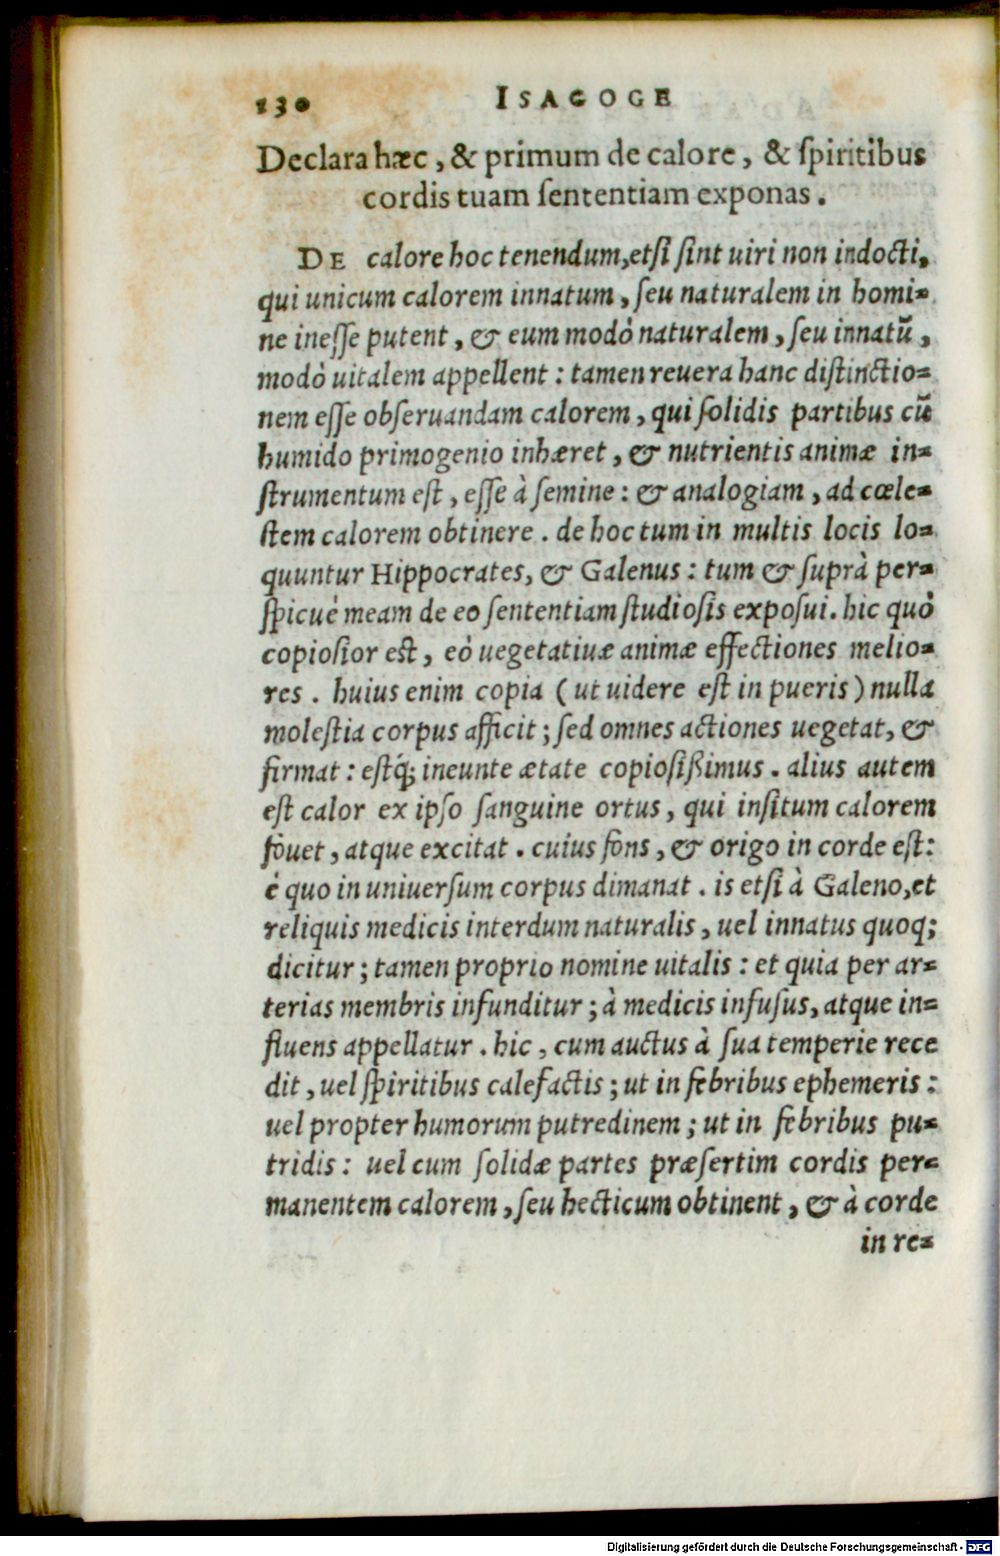 130 ISAGOGE
Declara hæc, & primum de calore, & ſpiritibus
cordis tuam ſententiam exponas.
DE calore hoc tenendum, etſi ſint uiri non indocti,
qui unicum calorem innatum, ſeu naturalem in homi=
ne ineſſe putent, & eum modò naturalem, ſeu innatũ,
modò uitalem appellent: tamen reuera hanc diſtinctio=
nem eſſe obſeruandam calorem, qui ſolidis partibus cũ
humido primogenio inhæret, & nutrientis animæ in=
ſtrumentum eſt, eſſe à ſemine: & analogiam, ad cœle=
ſtem calorem obtinere. de hoc tum in multis locis lo=
quuntur Hippocrates, & Galenus: tum & ſuprà per=
ſpicuè meam de eo ſententiam ſtudioſis expoſui. hic quò
copioſior eſt, eò uegetatiuæ animæ effectiones melio=
res. huius enim copia (ut uidere eſt in pueris) nulla
moleſtia corpus afficit; ſed omnes actiones uegetat, &
firmat: eſtq́; ineunte ætate copioſißimus. alius autem
eſt calor ex ipſo ſanguine ortus, qui inſitum calorem
fouet, atque excitat. cuius fons, & origo in corde eſt:
è quo in uniuerſum corpus dimanat. is etſi à Galeno, et
reliquis medicis interdum naturalis, uel innatus quoq;
dicitur; tamen proprio nomine uitalis: et quia per ar=
terias membris infunditur; à medicis infuſus, atque in=
fluens appellatur. hic, cum auctus à ſua temperie rece
dit, uel ſpiritibus calefactis; ut in febribus ephemeris:
uel propter humorum putredinem; ut in febribus pu=
tridis: uel cum ſolidæ partes præſertim cordis per=
manentem calorem, ſeu hecticum obtinent, & à corde
in re=
Digitalisierung gefördert durch die Deutsche Forschungsgemeinschaft - DFG